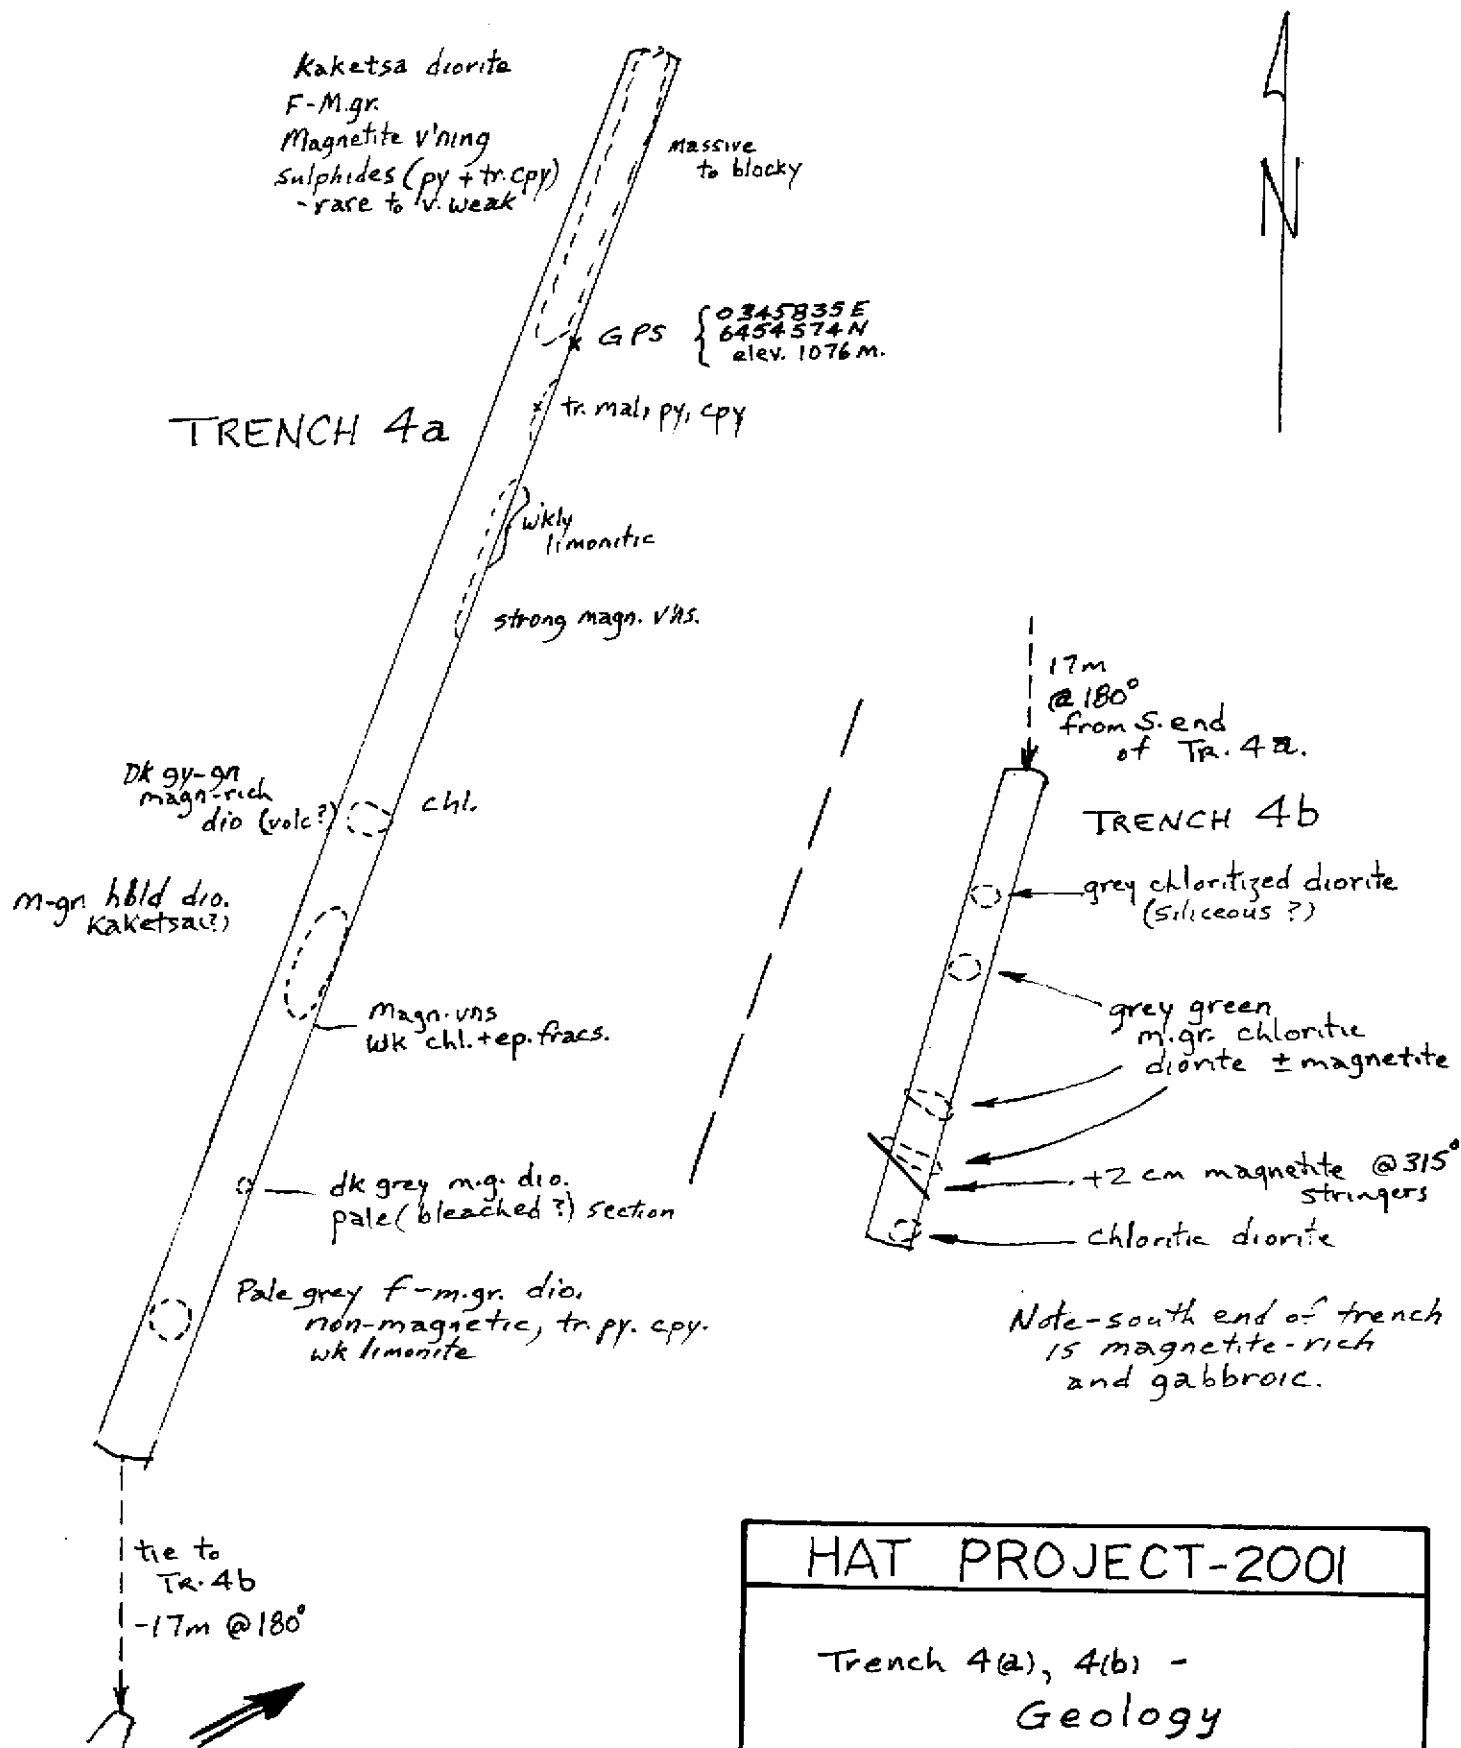 Kaketsa diorite
F-M.gr.
Magnetite v'ning
Sulphides (py + tr. cpy)
- rare to v. weak
massive
to blocky
N
GPS { 0345835 E
6454574 N
elev. 1076 m.
TRENCH 4a
tr. mal, py, cpy
wkly
limonitic
strong magn. v'ns.
Dk gy-gn
magn-rich
dio (volc?)
chl.
m-gn hbld dio.
Kaketsa(?)
Magn. vns
wk chl. + ep. fracs.
dk grey m.g. dio.
pale (bleached?) section
Pale grey f-m.gr. dio.
non-magnetic, tr. py. cpy.
wk limonite
tie to
TR. 4b
-17m @ 180°
17m
@ 180°
from S. end
of TR. 4a.
TRENCH 4b
grey chloritized diorite
(siliceous ?)
grey green
m.gr. chloritic
diorite ± magnetite
+2 cm magnetite @ 315°
stringers
Chloritic diorite
Note-south end of trench
is magnetite-rich
and gabbroic.
HAT PROJECT-2001
Trench 4(a), 4(b) -
Geology